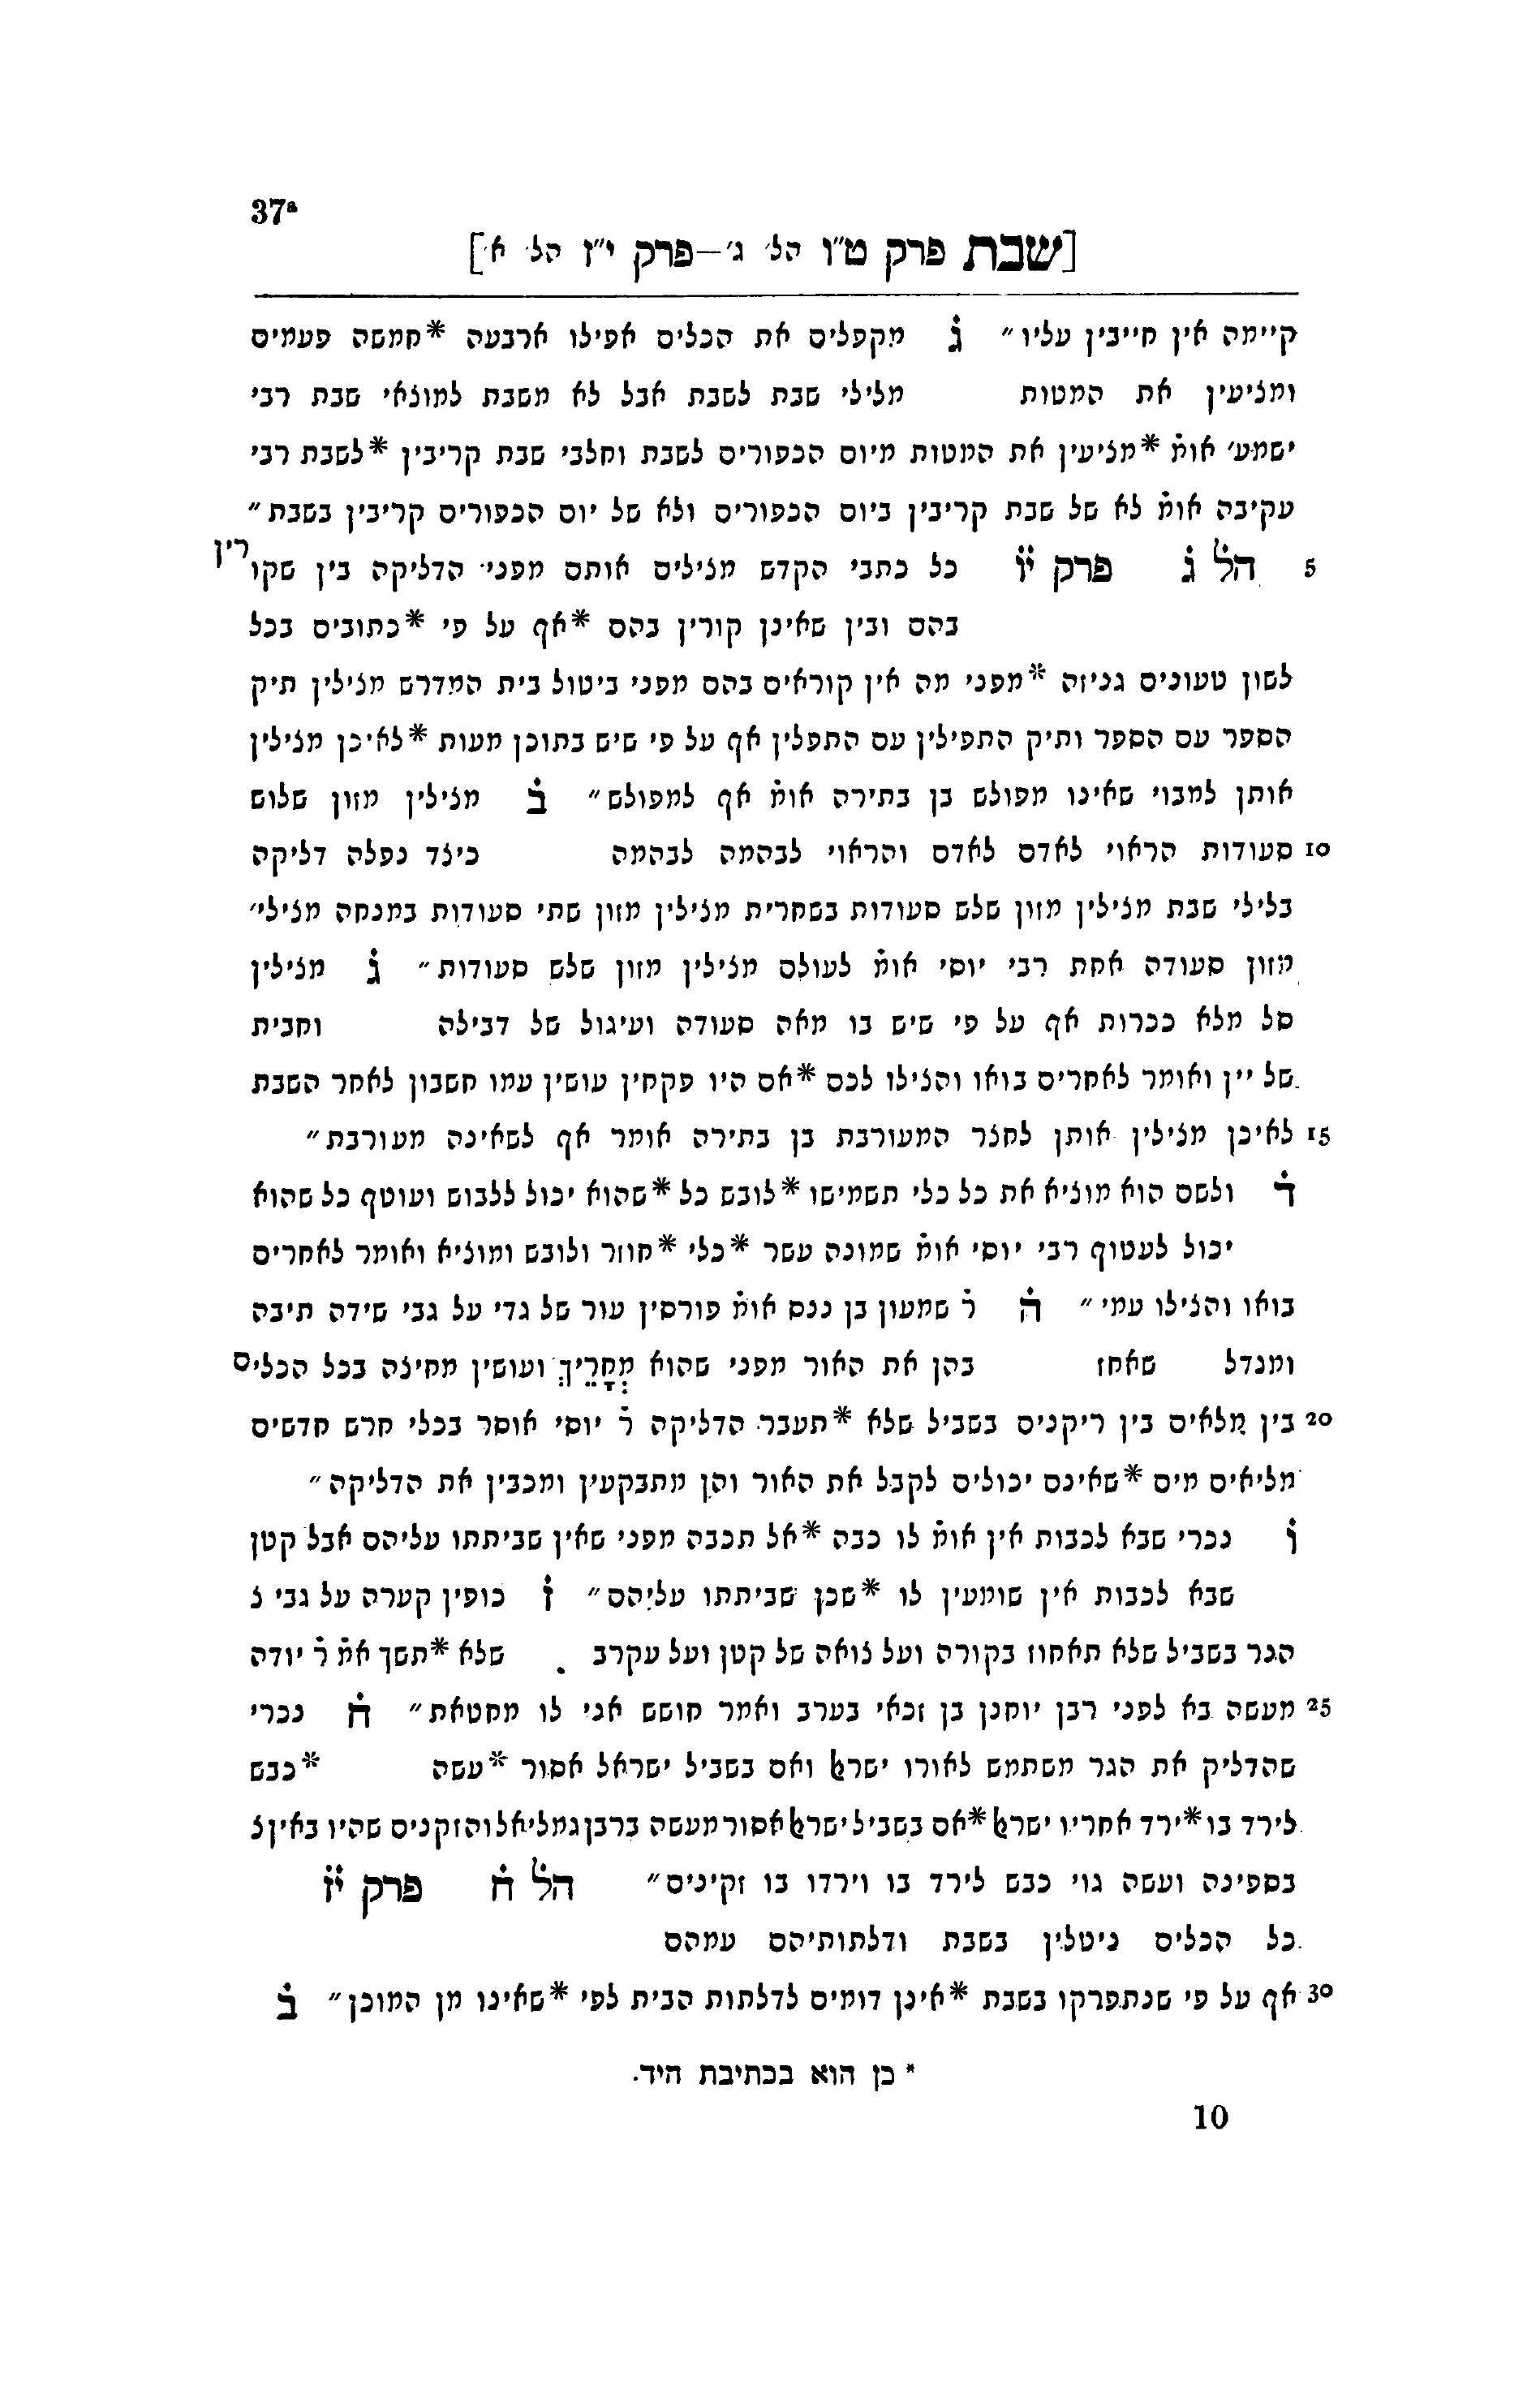 37ᵃ
[שבת פרק ט״ו הל׳ ג׳—פרק י״ז הל׳ א׳]
קיימה אין חייבין עליו״ ג̇ מקפלים את הכלים אפילו ארבעה *חמשה פעמים
ומציעין את המטות מלילי שבת לשבת אבל לא משבת למוצאי שבת רבי
ישמע׳ אומ̇ *מציעין את המטות מיום הכפורים לשבת וחלבי שבת קריבין *לשבת רבי
עקיבה אומ̇ לא של שבת קריבין ביום הכפורים ולא של יום הכפורים קריבין בשבת״
5 הל̇ ג̇ פרק י̇ו̇ כל כתבי הקדש מצילים אותם מפני הדליקה בין שקורין
בהם ובין שאינן קורין בהם *אף על פי *כתובים בכל
לשון טעונים גניזה *מפני מה אין קוראים בהם מפני ביטול בית המדרש מצילין תיק
הספר עם הספר ותיק התפילין עם התפלין אף על פי שיש בתוכן מעות *לאיכן מצילין
אותן למבוי שאינו מפולש בן בתירה אומ̇ אף למפולש״ ב̇ מצילין מזון שלוש
10 סעודות הראוי לאדם לאדם והראוי לבהמה לבהמה כיצד נפלה דליקה
בלילי שבת מצילין מזון שלש סעודות בשחרית מצילין מזון שתי סעודות במנחה מצילי׳
מזון סעודה אחת רבי יוסי אומ̇ לעולם מצילין מזון שלש סעודות״ ג̇ מצילין
סל מלא ככרות אף על פי שיש בו מאה סעודה ועיגול של דבילה וחבית
של יין ואומר לאחרים בואו והצילו לכם *אם היו פקחין עושין עמו חשבון לאחר השבת
15 לאיכן מצילין אותן לחצר המעורבת בן בתירה אומר אף לשאינה מעורבת״
ד̇ ולשם הוא מוציא את כל כלי תשמישו *לובש כל *שהוא יכול ללבוש ועוטף כל שהוא
יכול לעטוף רבי יוסי אומ̇ שמונה עשר *כלי *חוזר ולובש ומוציא ואומר לאחרים
בואו והצילו עמי״ ה̇ ר̇ שמעון בן ננס אומ̇ פורסין עור של גדי על גבי שידה תיבה
ומגדל שאחז בהן את האור מפני שהוא מְחָרֵיךְ ועושין מחיצה בכל הכלים
20 בין מלאים בין ריקנים בשביל שלא *תעבר הדליקה ר̇ יוסי אוסר בכלי חרש חדשים
מליאים מים *שאינם יכולים לקבל את האור והן מתבקעין ומכבין את הדליקה״
ו̇ נכרי שבא לכבות אין אומ̇ לו כבה *אל תכבה מפני שאין שביתתו עליהם אבל קטן
שבא לכבות אין שומעין לו *שכן שביתתו עליהם״ ז̇ כופין קערה על גבי צ
הנר בשביל שלא תאחוז בקורה ועל צואה של קטן ועל עקרב שלא *תשך אמ̇ ר̇ יודה
25 מעשה בא לפני רבן יוחנן בן זכאי בערב ואמר חושש אני לו מחטאת״ ח̇ נכרי
שהדליק את הנר משתמש לאורו ישרﭏ ואם בשביל ישראל אסור *עשה *כבש
לירד בו *ירד אחריו ישרﭏ *אם בשביל ישרﭏ אסור מעשה ברבן גמליאל והזקנים שהיו באין צ
בספינה ועשה גוי כבש לירד בו וירדו בו זקינים״ הל̇ ח̇ פרק י̇ז̇
כל הכלים ניטלין בשבת ודלתותיהם עמהם
30 אף על פי שנתפרקו בשבת *אינן דומים לדלתות הבית לפי *שאינו מן המוכן״ ב̇
* כן הוא בכתיבת היד.
10